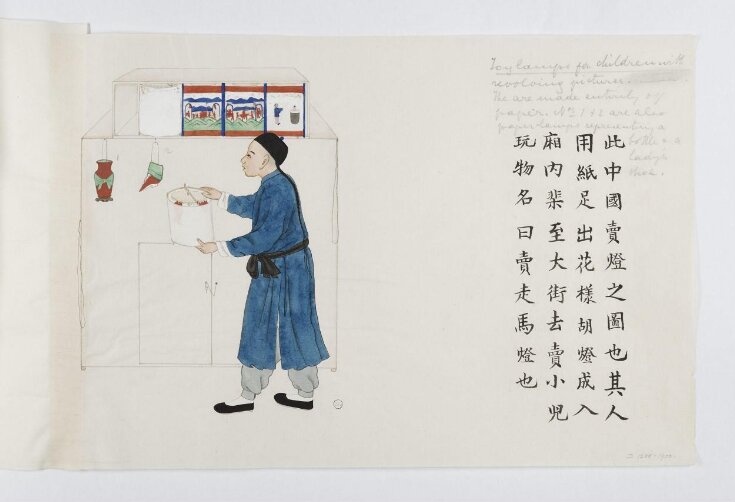 Toy lamps for children with
revolving pictures.
The are made entirely of
paper. No 1 & 2 are also
paper lamps representing a
bottle & a
lady's
shoe.
此中國賣燈之圖也其人
用紙足出花樣胡燈成入
廂內至大街去賣小兒
玩物名曰賣走馬燈也
1
2